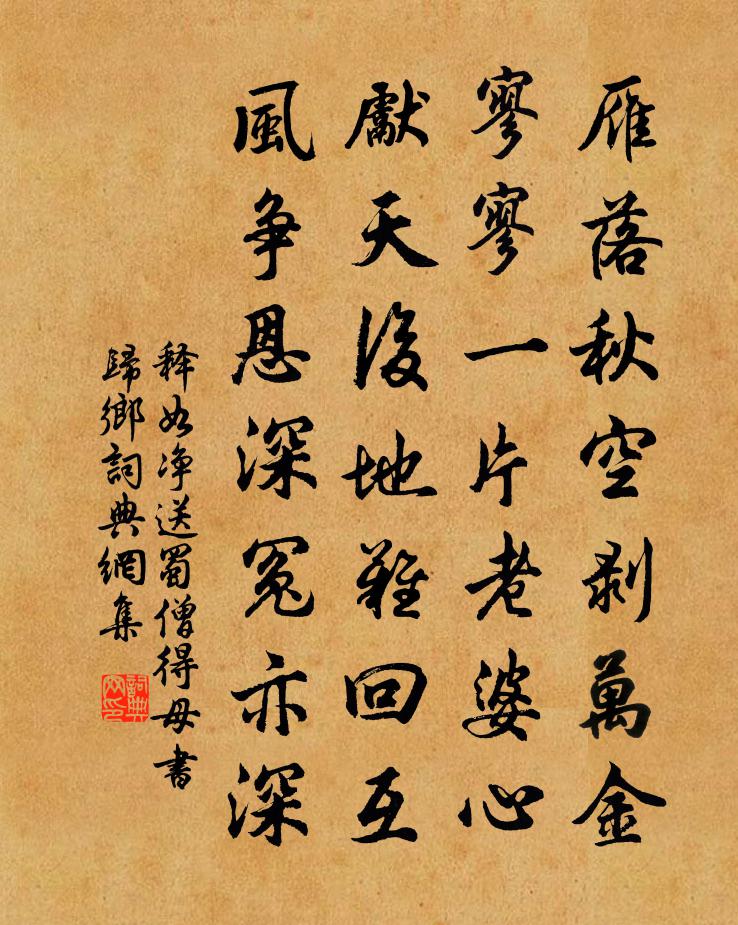 雁落秋空剥萬金
寥寥一片老婆心
獻天後地難回互
風争恩深冤亦深
释如净送蜀僧得母書
歸鄉詞典網集
詞典網印